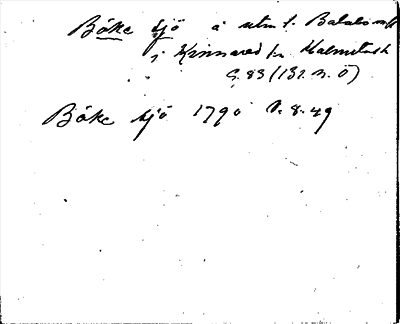 Böke sjö å utm t. Batalsm
i Kinnared sn Halmstads
G.83 (131.n.ö)
Böke sjö 1790 A.8.49